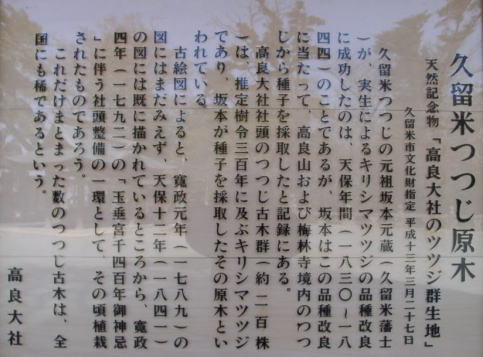 久留米つつじ原木
天然記念物「高良大社のツツジ群生地」
久留米市文化財指定 平成十三年三月二十七日
久留米つつじの元祖坂本元蔵(久留米藩士
)が、実生によるキリシマツツジの品種改良
に成功したのは、天保年間(一八三〇~一八
四四)のことであるが、坂本はこの品種改良
に当たって、高良山および梅林寺境内のつつ
じから種子を採取したと記録にある。
高良大社社頭のつつじ古木群(約二百株
)は、推定樹令三百年に及ぶキリシマツツジ
であり、坂本が種子を採取したその原木とい
われている。
古絵図によると、寛政元年(一七八九)の
図にはまだみえず、天保十二年(一八四一)
の図には既に描かれているところから、寛政
四年(一七九二)の「玉垂宮千四百年御神忌
」に伴う社頭整備の一環として、その頃植栽
されたものであろう。
これだけまとまった数のつつじ古木は、全
国にも稀であるという。
高良大社